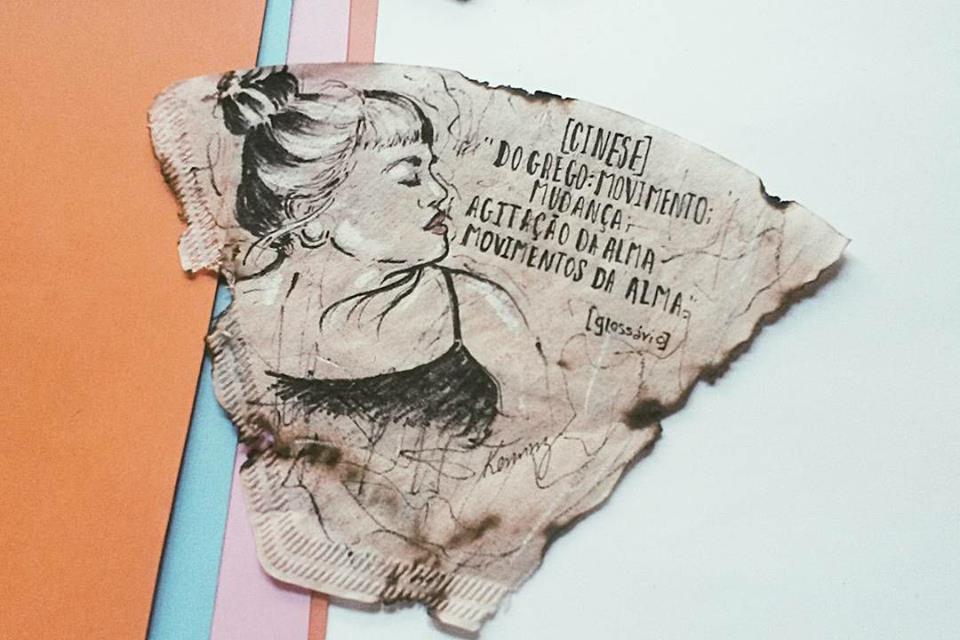 [CINESE]
"DO GREGO: MOVIMENTO;
MUDANÇA;
AGITAÇÃO DA ALMA
MOVIMENTOS DA ALMA."
[glossário]